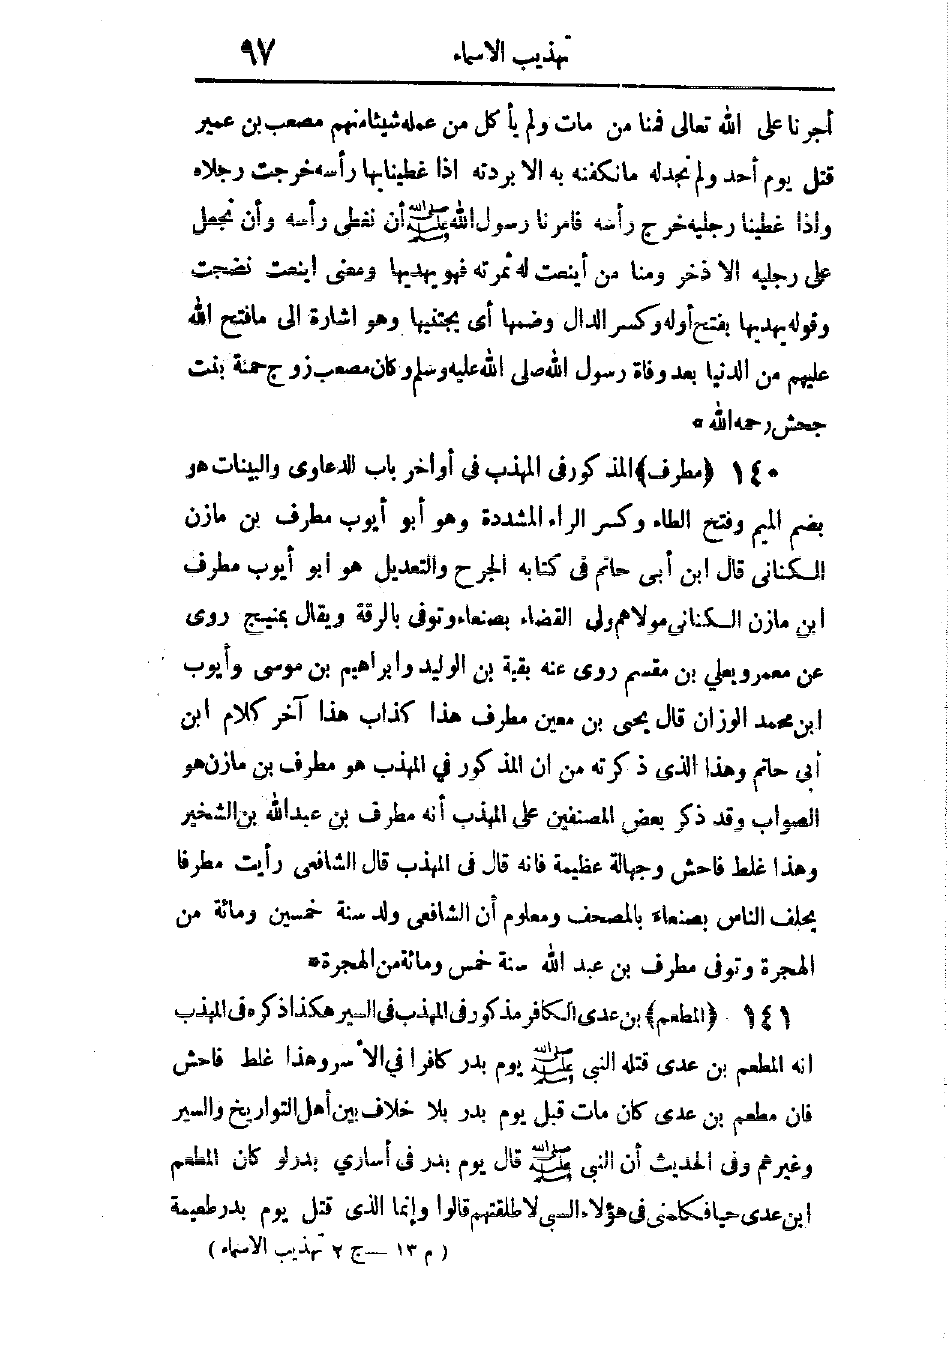 تهذيب الاسماء ٩٧
أجرنا على الله تعالى فمنا من مات ولم يأكل من عمله شيئا منهم مصعب بن عمير
قتل يوم أحد ولم نجد له ما نكفنه به الا بردته اذا غطينا بها رأسه خرجت رجلاه
واذا غطينا رجليه خرج رأسه فامرنا رسول الله ﷺ أن نغطى رأسه وأن نجعل
على رجليه الاذخر ومنا من أينعت له ثمرته فهو يهديها ومعنى اينعت نضجت
وقوله يهديها بفتح أوله وكسر الدال وضمها أى يجتنيها وهو اشارة الى ما فتح الله
عليهم من الدنيا بعد وفاة رسول الله صلى الله عليه وسلم وكان مصعب زوج حمنة بنت
جحش رحمه الله *
١٤٠ (مطرف) المذكور فى المهذب فى أواخر باب الدعاوى والبينات هو
بضم الميم وفتح الطاء وكسر الراء المشددة وهو أبو أيوب مطرف بن مازن
الكنانى قال ابن أبى حاتم فى كتابه الجرح والتعديل هو ابو أيوب مطرف
ابن مازن الكناني مولاهم ولى القضاء بصنعاء وتوفى بالرقة ويقال بمنبج روى
عن معمر ويعلي بن مقسم روى عنه بقية بن الوليد وابراهيم بن موسى وأيوب
ابن محمد الوزان قال يحيى بن معين مطرف هذا كذاب هذا آخر كلام ابن
أبى حاتم وهذا الذى ذكرته من ان المذكور في المهذب هو مطرف بن مازن هو
الصواب وقد ذكر بعض المصنفين على المهذب أنه مطرف بن عبد الله بن الشخير
وهذا غلط فاحش وجهالة عظيمة فانه قال فى المهذب قال الشافعى رأيت مطرفا
يحلف الناس بصنعاء بالمصحف ومعلوم أن الشافعى ولد سنة خمسين ومائة من
الهجرة وتوفى مطرف بن عبد الله سنة خمس ومائة من الهجرة *
١٤١ (المطعم) بن عدى الكافر مذكور فى المهذب فى السير هكذا ذكره فى المهذب
انه المطعم بن عدى قتله النبى ﷺ يوم بدر كافرا في الأسر وهذا غلط فاحش
فان مطعم بن عدى كان مات قبل يوم بدر بلا خلاف بين أهل التواريخ والسير
وغيرهم وفى الحديث أن النبى ﷺ قال يوم بدر فى أسارى بدر لو كان المطعم
ابن عدى حيا فكلمنى فى هؤلاء السبى لأطلقتهم قالوا وإنما الذى قتل يوم بدر طعيمة
( م ١٣ — ج ٢ تهذيب الاسماء )